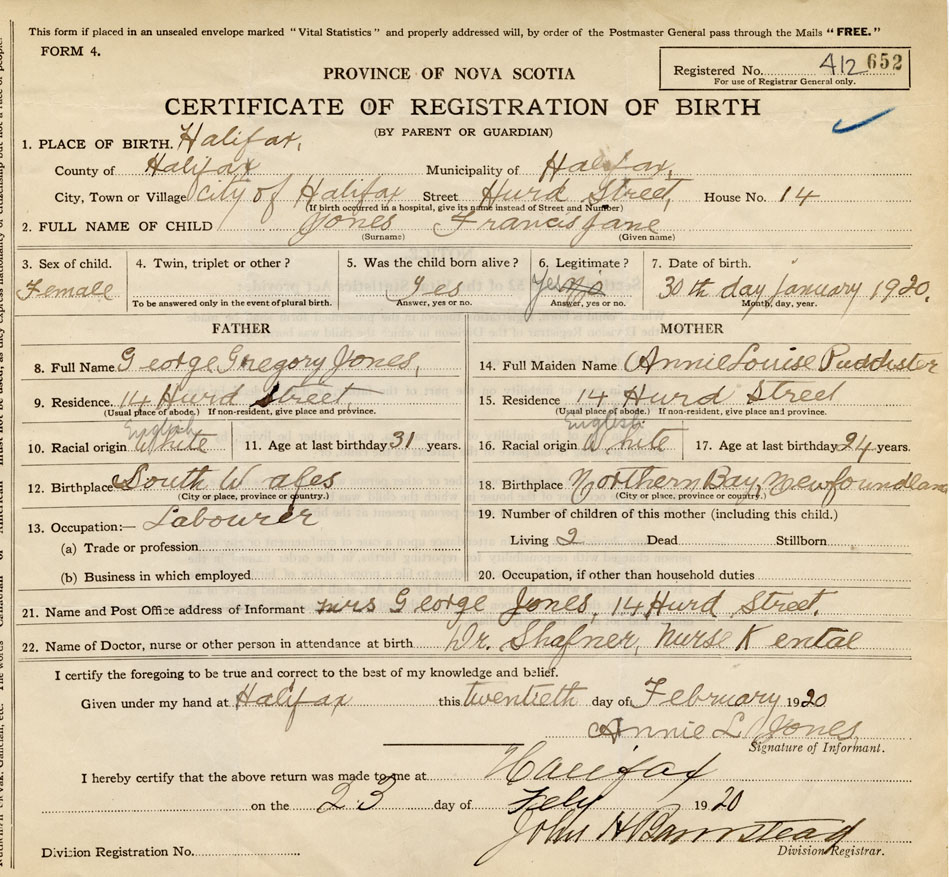 This form if placed in an unsealed envelope marked "Vital Statistics" and properly addressed will, by order of the Postmaster General pass through the Mails "FREE."
FORM 4.
PROVINCE OF NOVA SCOTIA
Registered No. 412 652
For use of Registrar General only.
CERTIFICATE OF REGISTRATION OF BIRTH
(BY PARENT OR GUARDIAN)
1. PLACE OF BIRTH. Halifax,
County of Halifax Municipality of Halifax,
City, Town or Village city of Halifax Street Hurd Street, House No. 14
(If birth occurred in a hospital, give its name instead of Street and Number)
2. FULL NAME OF CHILD Jones Francis Jane
(Surname) (Given name)
3. Sex of child. 4. Twin, triplet or other? 5. Was the child born alive? 6. Legitimate? 7. Date of birth.
Female Yes Yes no 30th day January 1920.
To be answered only in the event of plural birth. Answer, yes or no. Answer, yes or no. Month, day, year.
FATHER MOTHER
8. Full Name George Gregory Jones, 14. Full Maiden Name Annie Louise Puddister
9. Residence. 14 Hurd Street 15. Residence 14 Hurd Street
(Usual place of abode.) If non-resident, give place and province. (Usual place of abode.) If non-resident, give place and province.
English English
10. Racial origin White 11. Age at last birthday 31 years. 16. Racial origin White 17. Age at last birthday 24 years.
12. Birthplace South Wales 18. Birthplace Northern Bay, Newfoundland
(City or place, province or country.) (City or place, province or country.)
13. Occupation:— Labourer 19. Number of children of this mother (including this child.)
(a) Trade or profession Living 2 Dead Stillborn
(b) Business in which employed 20. Occupation, if other than household duties
21. Name and Post Office address of Informant Mrs George Jones, 14 Hurd Street.
22. Name of Doctor, nurse or other person in attendance at birth Dr. Shafner, Nurse
I certify the foregoing to be true and correct to the best of my knowledge and belief.
Given under my hand at Halifax this twentieth day of February 1920
Annie L Jones,
Signature of Informant.
I hereby certify that the above return was made to me at Halifax
on the 23 day of Feby 1920
John H Barnstead
Division Registrar.
Division Registration No.